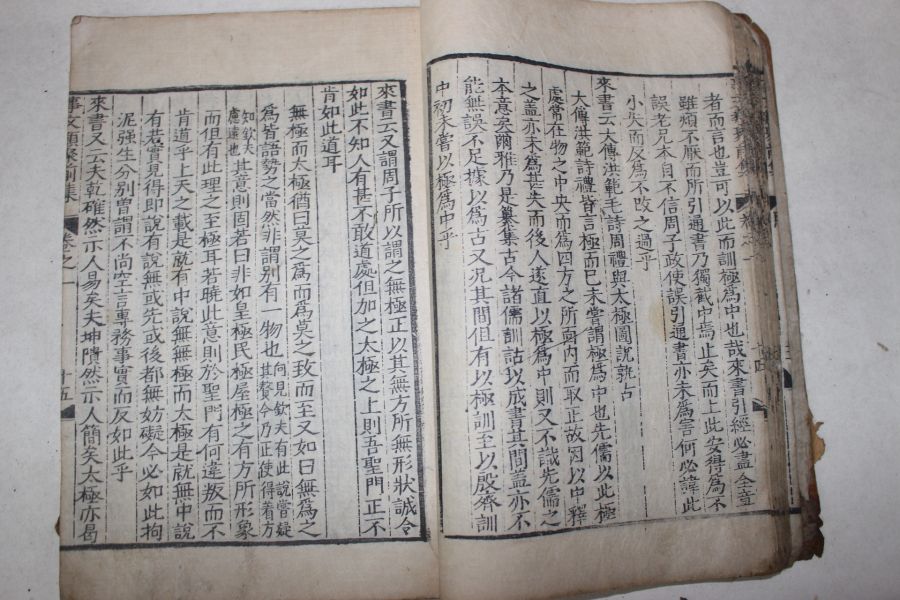 者而言也豈可以此而訓極為中也哉來書引經必盡全章
雖煩不厭而所引通書乃獨截中焉止矣而上此安得為不
誤老兄本自不信周子政使誤引通書亦未為害何必諱此
小失而反為不改之過乎
來書云大傳洪範毛詩周禮與太極圖說孰古
大傳洪範詩禮皆言極而已未嘗謂極為中也先儒以此極
處常在物之中央而為四方之所面內而取正故因以中釋
之蓋亦未為甚失而後人遂直以極為中則又不識先儒之
本意矣爾雅乃是纂集古今諸儒訓詁以成書其間蓋亦不
能無誤不足據以為古又況其間但有以極訓至以殷齊訓
中初未嘗以極為中乎
來書云又謂周子所以謂之無極正以其無方所無形狀誠令
如此不知人有甚不敢道處但加之太極之上則吾聖門正不
肯如此道耳
無極而太極猶曰莫之為而為莫之致而至又如曰無為之
為皆語勢之當然非謂別有一物也向見欽夫有此說嘗疑其贅今乃正使得着方
知欽夫慮遠也其意則固若曰非如皇極民極屋極之有方所形象
而但有此理之至極耳若曉此意則於聖門有何違叛而不
肯道乎上天之載是就有中說無無極而太極是就無中說
有若實見得即說有說無或先或後都無妨礙今必如此拘
泥强生分別曾謂不尚空言專務事實而反如此乎
來書又云夫乾確然示人易矣夫坤隤然示人簡矣太極亦曷
事文類聚別集 卷之一 十五